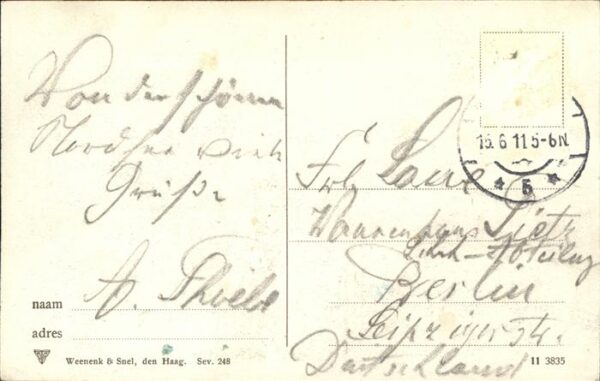 Von der schönen
Nordsee viele
Grüße
A. Thiele
naam
adres
Weenenk & Snel, den Haag. Sev. 248
15.6.11 5-6N.
* 5 *
Frl.
Warenhaus Tietz
Abteilung
Berlin
Leipzigerstr.
Deutschland
11 3835